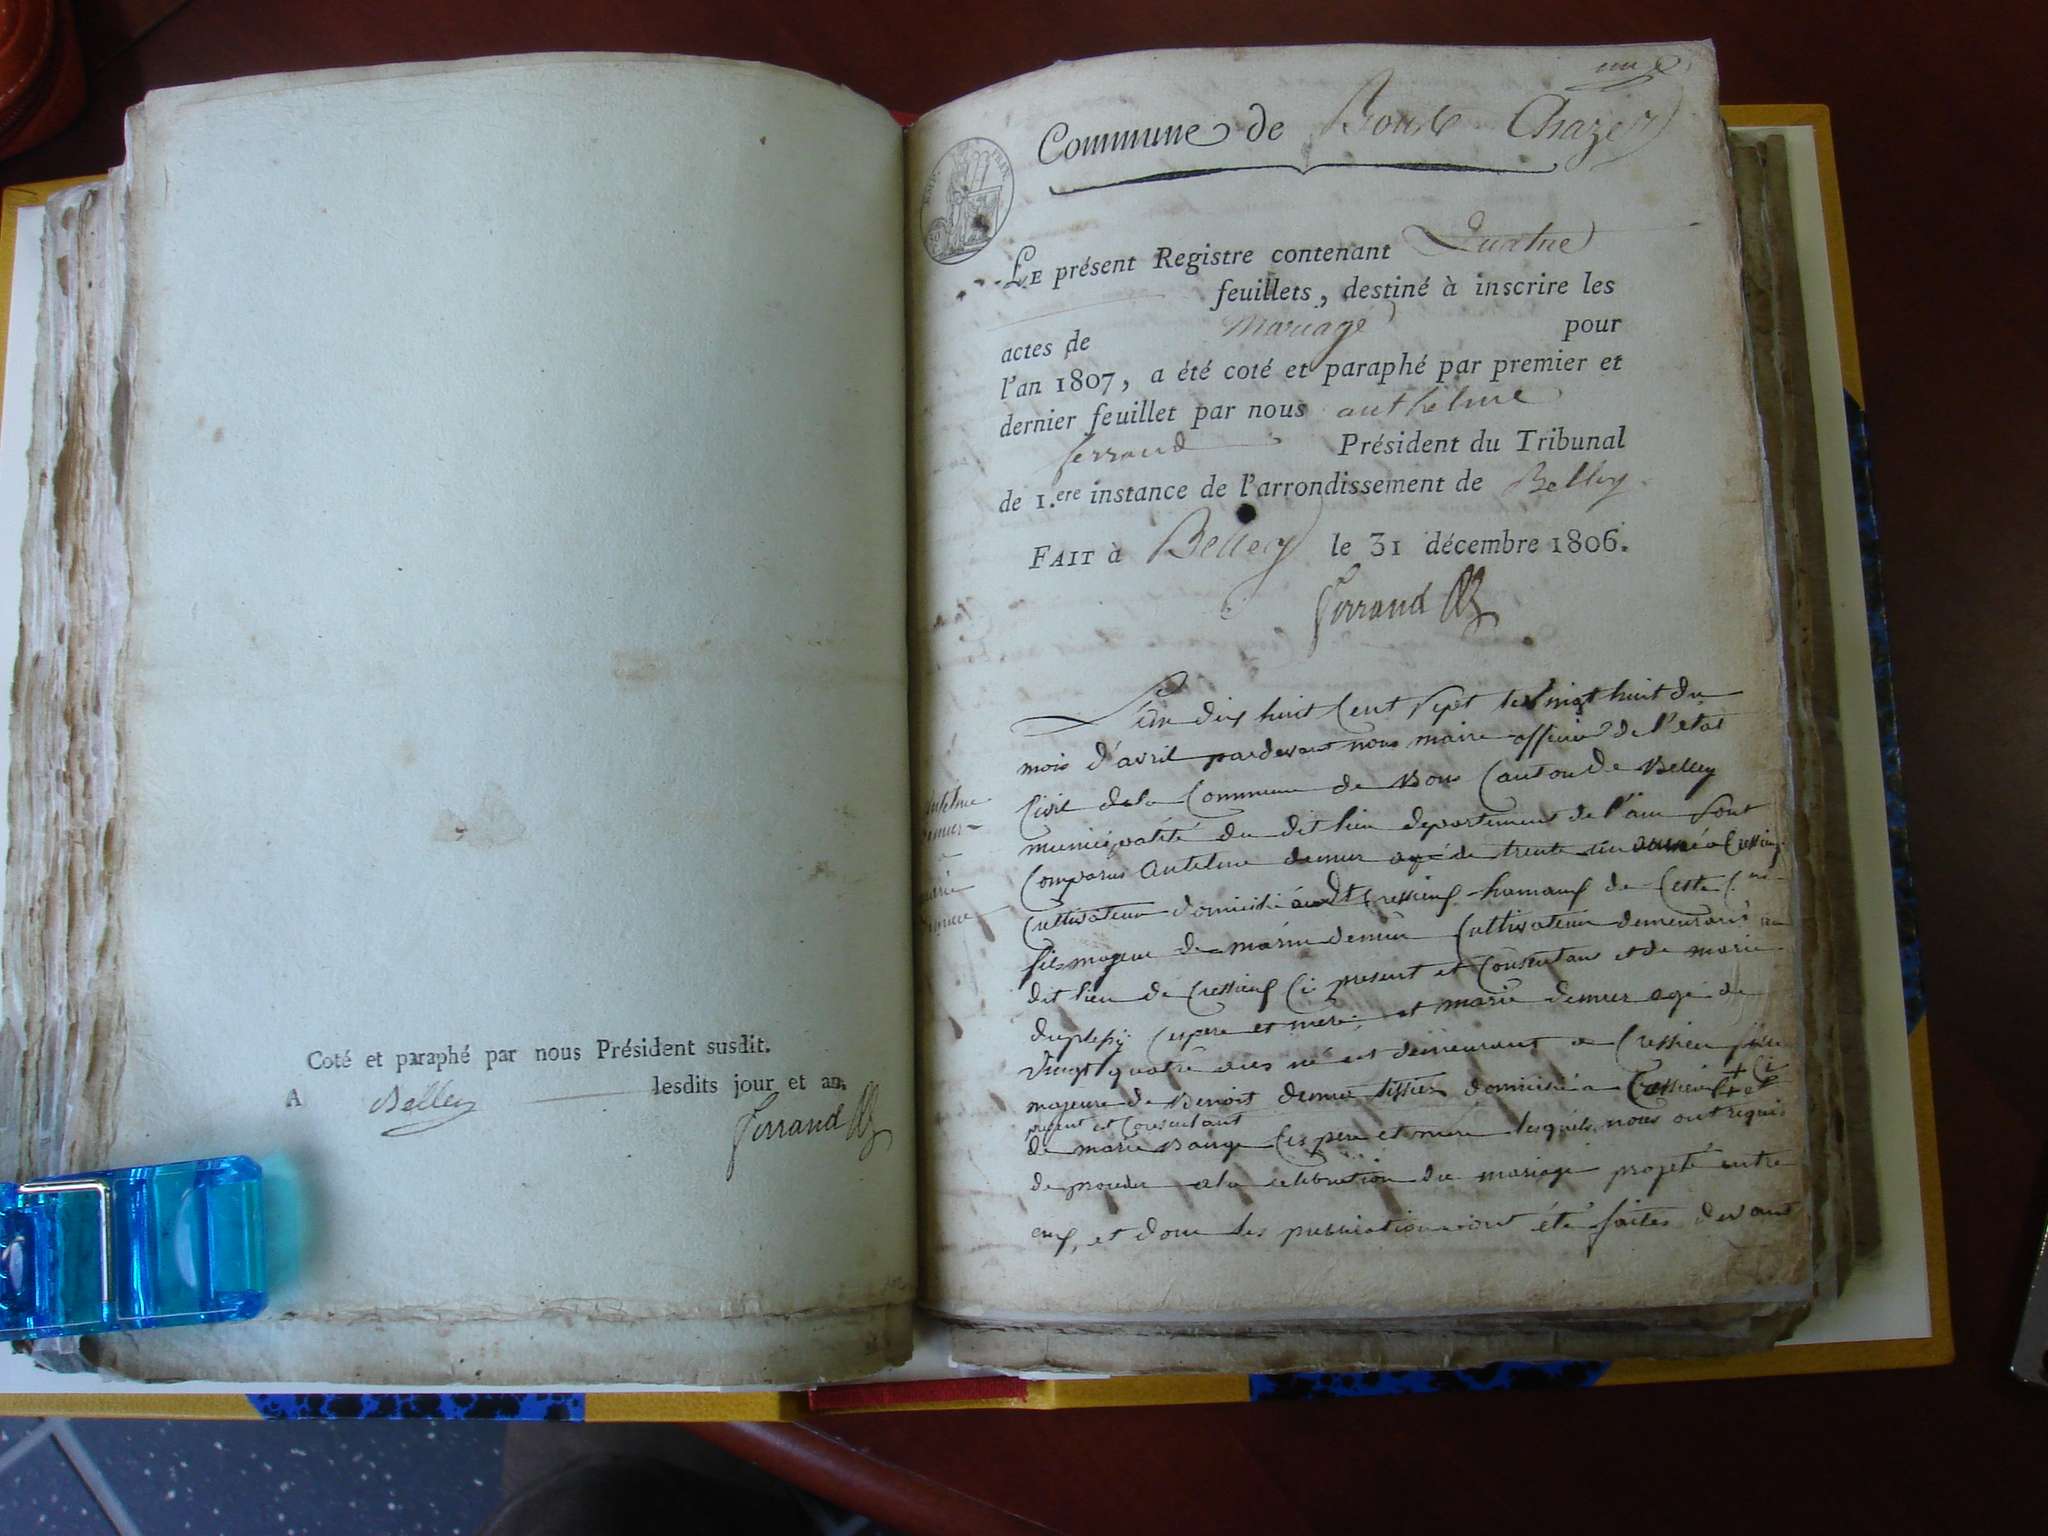 Coté et paraphé par nous Président susdit.
A Belley lesdits jour et an.
Ferrand
Commune de Bons Chazey
Le présent Registre contenant Quatre
feuillets, destiné à inscrire les
actes de Mariage pour
l'an 1807, a été coté et paraphé par premier et
dernier feuillet par nous anthelme
ferrand Président du Tribunal
de 1.ere instance de l'arrondissement de Belley
Fait à Belley le 31 décembre 1806.
Ferrand
L'an dix huit Cent Sept le Vingt huit du
mois d'avril pardevant nous maire officier de l'etat
Civil de la Commune de Bons Canton de Belley
municipalité du dit lieu departement de l'ain Sont
Comparus Antelme demur agé de trente un né a Cressieuf
Cultivateur domicilié audt Cressieuf hamauf de Cette
fils majeur de marin demur Cultivateur demeurant au
dit lieu de Cressieuf Ci present et Consentant et de marie
Ces pere et mere, et marie demur agé de
Vingt quatre ans né et demeurant a Cressieu fille
majeure de Benoit demur tissier domicilié a Cressieuf + Ci
present et Consentant + et
de marie Ces pere et mere lesquels nous ont requis
de proceder a la celebration du mariage projeté entre
euf, et dont les publications ont été faites devant
Antelme
demur
marie